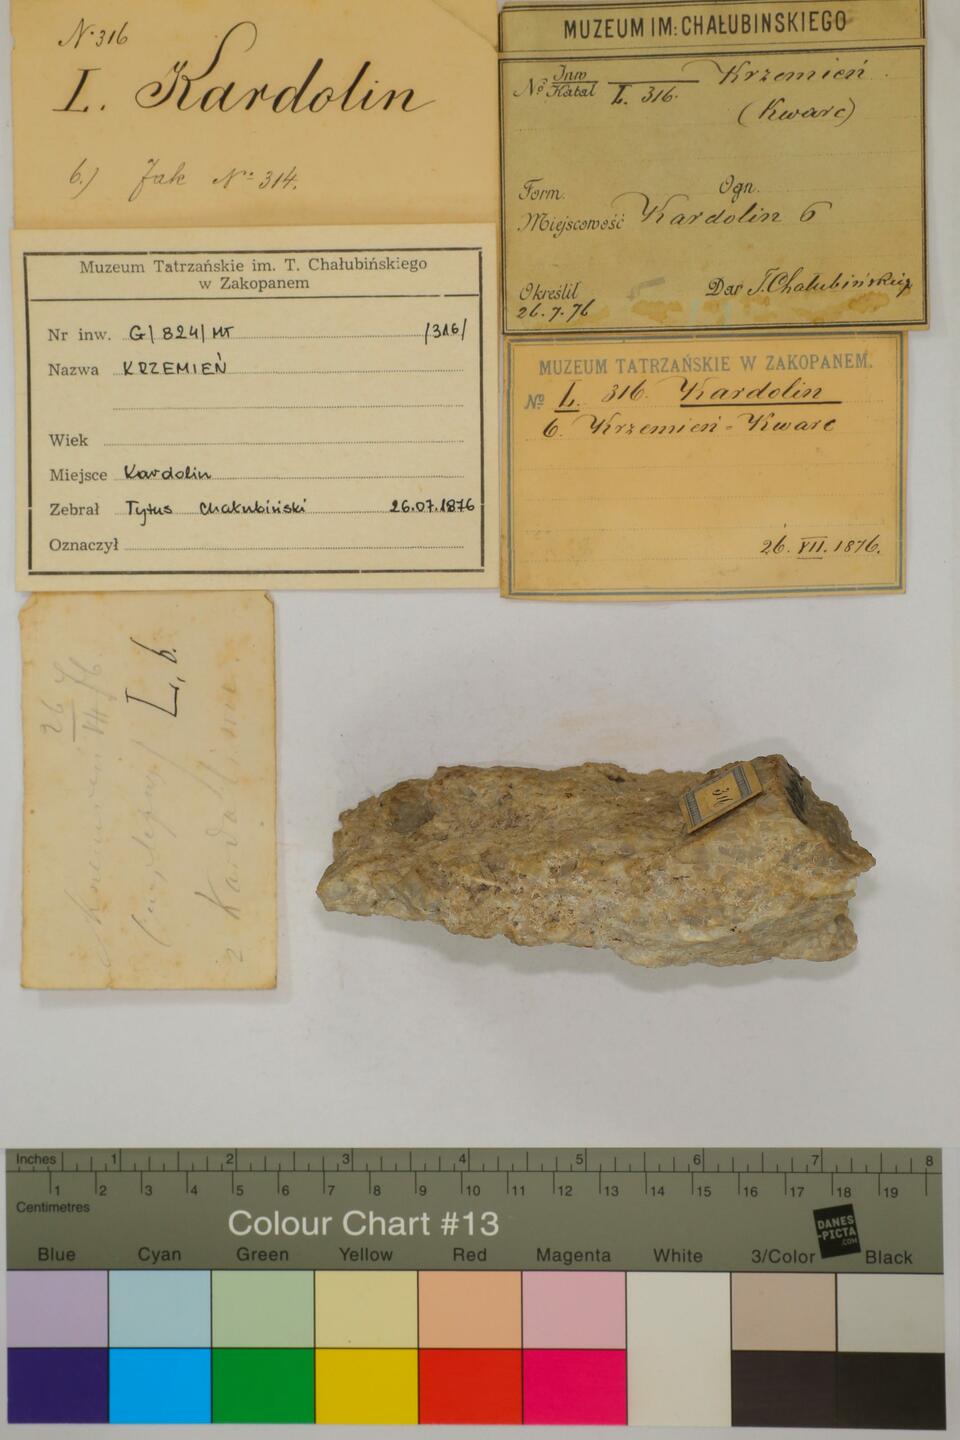 N. 316
L. Kardolin
b.) Jak No 314.
MUZEUM IM: CHAŁUBINSKIEGO
No Inw / Katal L. 316. Krzemień
(Kwarc)
Form. Ogn.
Miejscowość Kardolin 6
Określił Dar T. Chałubińskiego
26.7.76
Muzeum Tatrzańskie im. T. Chałubińskiego
w Zakopanem
Nr inw. G/824/MT /316/
Nazwa KRZEMIEŃ
Wiek
Miejsce Kardolin
Zebrał Tytus Chałubiński 26.07.1876
Oznaczył
MUZEUM TATRZAŃSKIE W ZAKOPANEM.
No L. 316. Kardolin
6. Krzemień - Kwarc
26. VII. 1876.
L, b.
26
316
Inches 1 2 3 4 5 6 7 8
1 2 3 4 5 6 7 8 9 10 11 12 13 14 15 16 17 18 19
Centimetres
Colour Chart #13
DANES
-PICTA
.COM
Blue Cyan Green Yellow Red Magenta White 3/Color Black